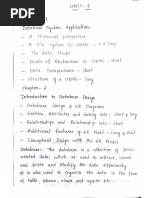 UNIT-1
Database System Applications
- A Historical perspective
- A File System Vs DBMS - V.V Imp
- The Data Model
- Levels of Abstraction in DBMS - short
- Data Independence - short
- Structure of a DBMS - long
chapter-2
Introduction to Database Design
- Database design & ER Diagrams
- Entities, Attributes and Entity sets - short & long
- Relationships and Relationship sets - short
- Additional Features of ER Model - long & short
- Conceptual Design with the ER Model
Database:- The database is a collection of inter-
related data which is used to retrieve, insert
and delete and Modify the data efficiently.
It is also used to organize the data in the form
of table, schema, views and reports etc.